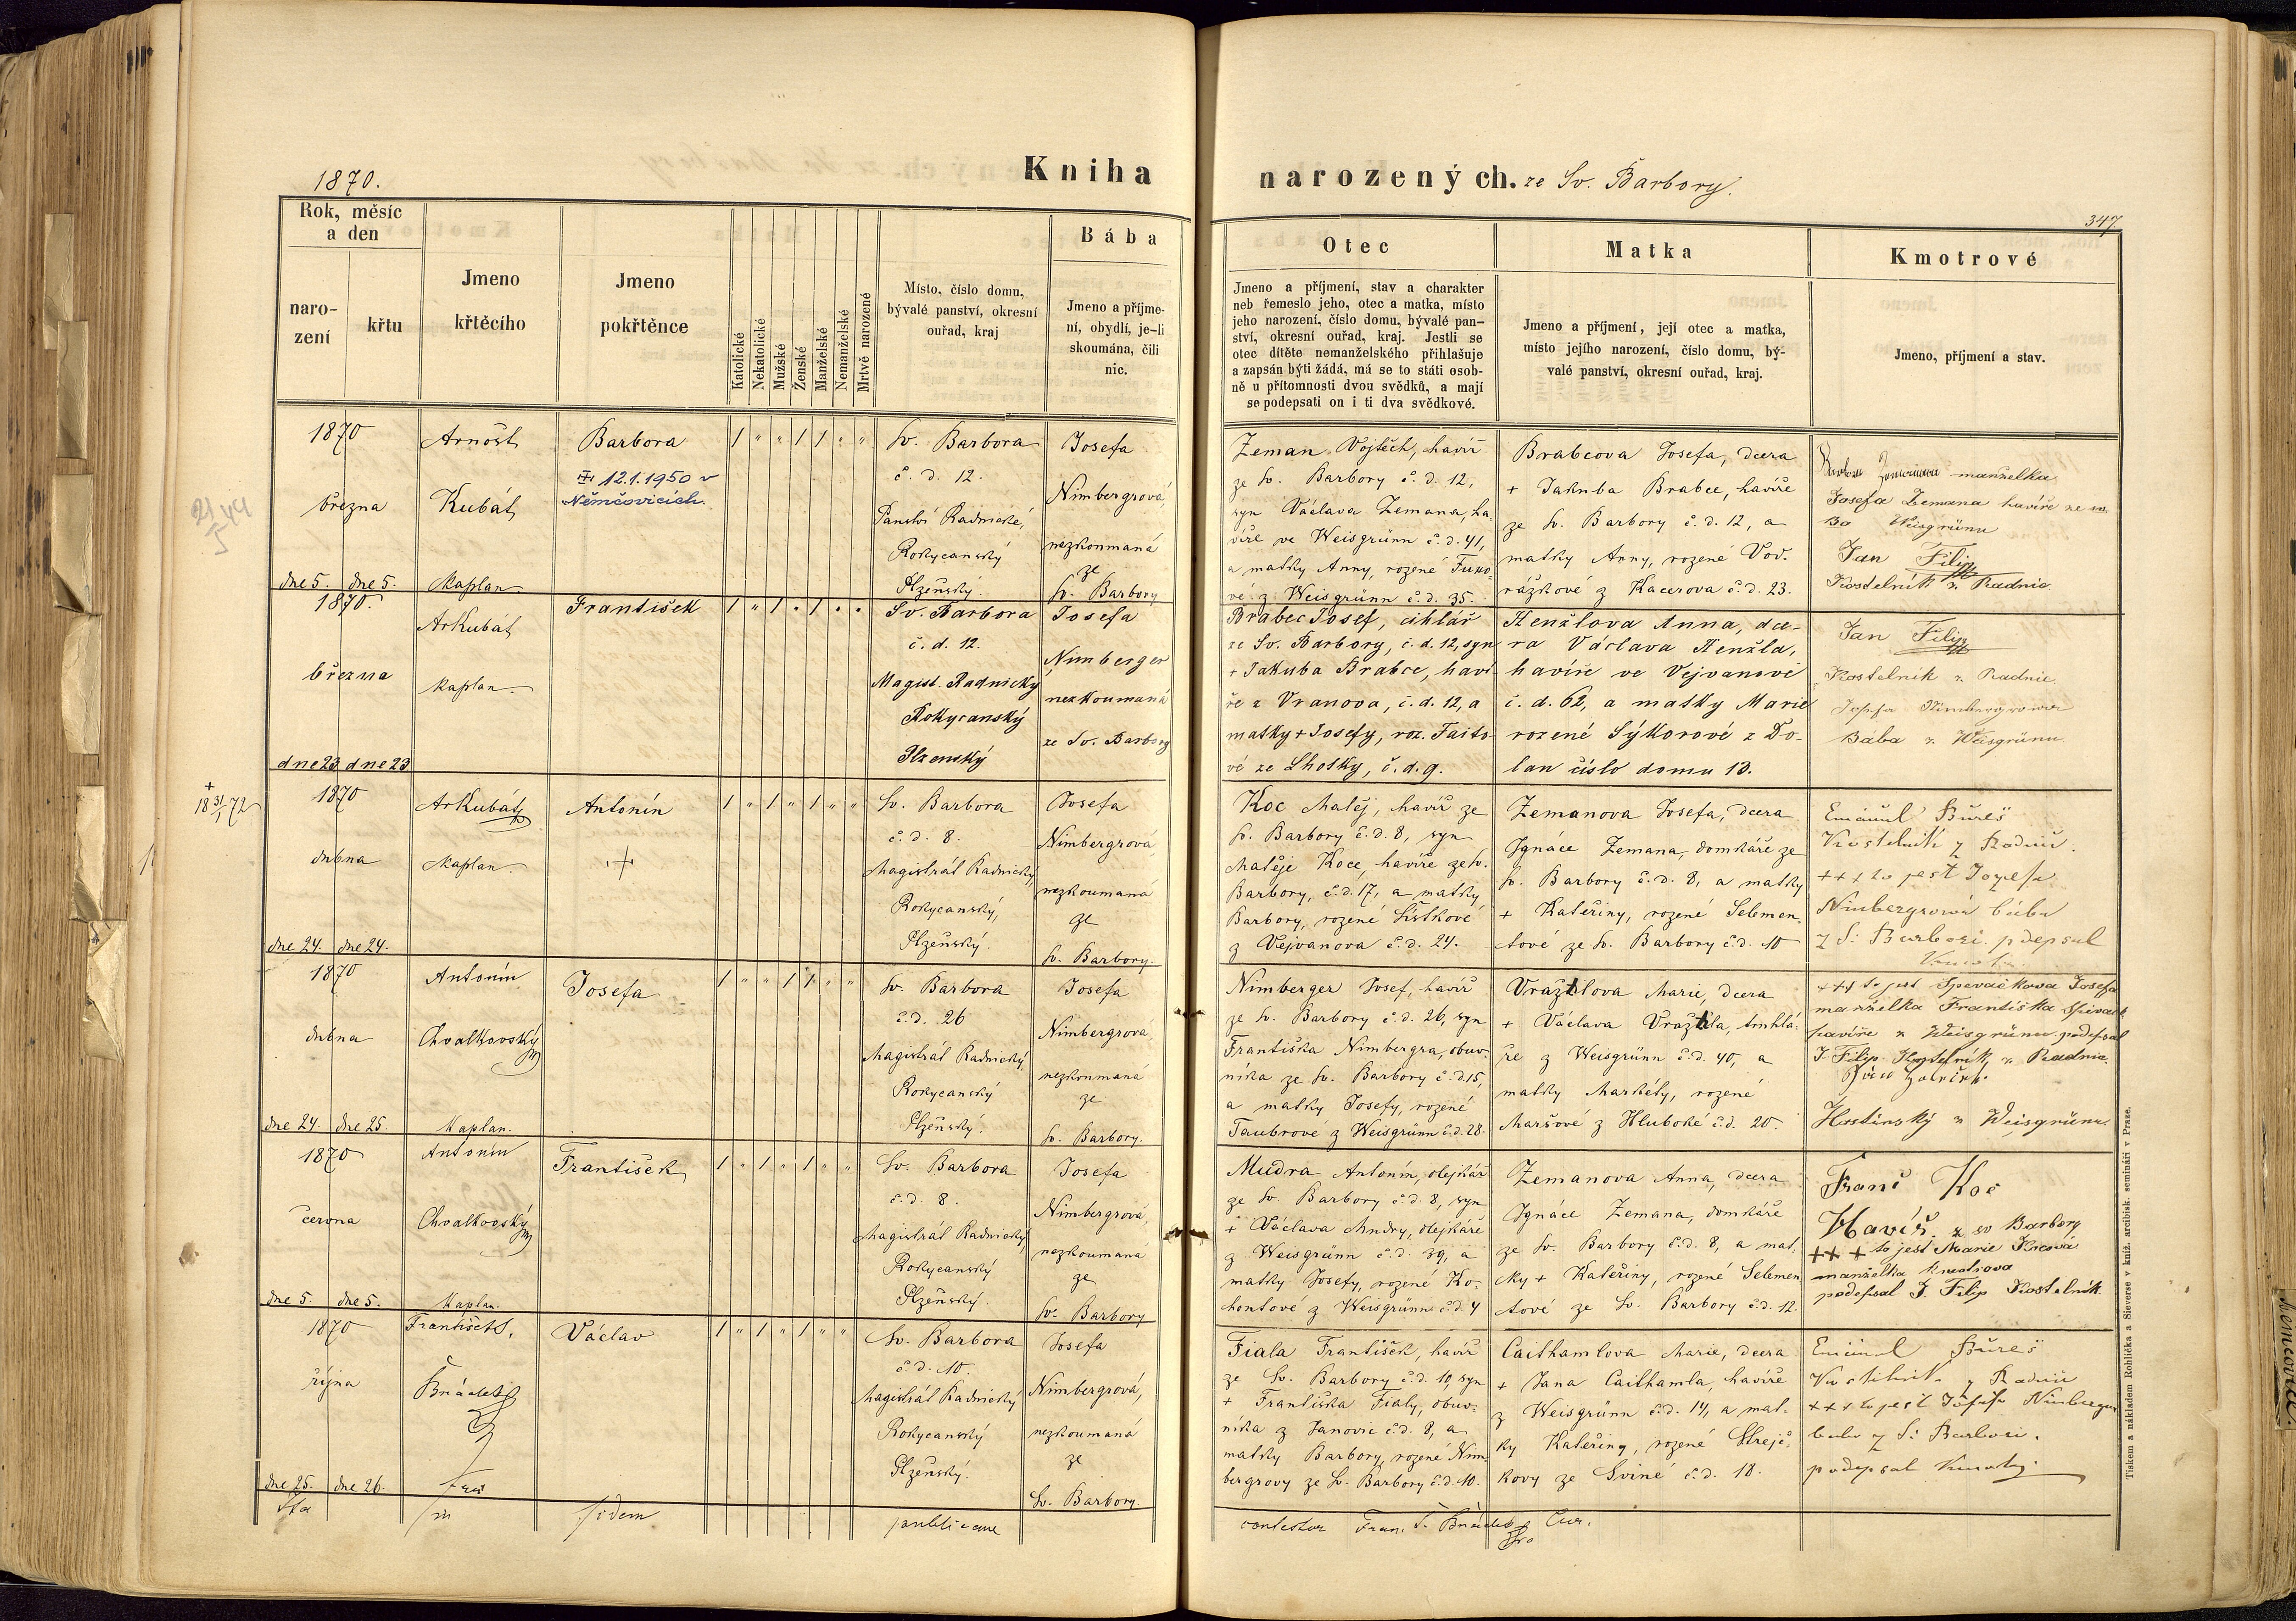 1870.
Kniha
narozených. ze Sv. Barbory.
347
Rok, měsíc
a den
naro-
zení
křtu
Jmeno
křtěcího
Jmeno
pokřtěnce
Katolické
Nekatolické
Mužské
Ženské
Manželské
Nemanželské
Mrtvě narozené
Místo, číslo domu,
bývalé panství, okresní
ouřad, kraj
Bába
Jmeno a příjme-
ní, obydlí, je-li
skoumána, čili
nic.
Otec
Jmeno a příjmení, stav a charakter
neb řemeslo jeho, otec a matka, místo
jeho narození, číslo domu, bývalé pan-
ství, okresní ouřad, kraj. Jestli se
otec dítěte nemanželského přihlašuje
a zapsán býti žádá, má se to státi osob-
ně u přítomnosti dvou svědků, a mají
se podepsati on i ti dva svědkové.
Matka
Jmeno a příjmení, její otec a matka,
místo jejího narození, číslo domu, bý-
valé panství, okresní ouřad, kraj.
Kmotrové
Jmeno, příjmení a stav.
1870
března
dne 5. dne 5.
Arnošt
Kubát
Kaplan
Barbora
12.1.1950 v
Němčovicích.
1 " " 1 1 " "
Sv. Barbora
č. d. 12.
Panství Radnické,
Rokycanský
Plzeňský.
Josefa
Nimbergrová,
nezkoumaná
ze
Sv. Barbory
Zeman Vojtěch, havíř
ze Sv. Barbory č. d. 12,
syn Václava Zemana, ha-
víře ve Weisgrünn č. d. 41,
a matky Anny, rozené
vé z Weisgrünn č. d. 35.
Brabcova Josefa, dcera
+ Jakuba Brabce, havíře
ze Sv. Barbory č. d. 12, a
matky Anny, rozené Vod-
rážkové z Kacerova č. d. 23.
manželka
Josefa Zemana havíře
Weisgrünu
Jan Filip
Kostelník z Radnic
1870.
března
dne 23 dne 23
ArKubát
kaplan.
František
1 " 1 " 1 " "
Sv. Barbora
č. d. 12.
Magist. Radnický
Rokycanský
Plzenský
Josefa
Nimberger
nezkoumaná
ze Sv. Barbory
Brabec Josef, cihlář
ze Sv. Barbory, č. d. 12, syn
+ Jakuba Brabce, haví-
ře z Vranova, č. d. 12, a
matky + Josefy, roz. Faito-
vé ze Lhotky, č. d. 9.
Henžlova Anna, dce-
ra Václava Henžla,
havíře ve Vejvanově
č. d. 62, a matky Marie
rozené Sýkorové z Do-
lan číslo domu 13.
Jan Filip
Kostelník z Radnic
Josefa Nimbergrowa
Bába z Weisgrünu
+
18 31/1 72
1870
dubna
dne 24. dne 24.
ArKubát
Kaplan.
Antonín
+
1 " 1 " 1 " "
Sv. Barbora
č. d. 8.
Magistrát Radnický,
Rokycanský,
Plzeňský.
Josefa
Nimbergrová
nezkoumaná
ze
Sv. Barbory.
Koc Matěj, havíř ze
Sv. Barbory č. d. 8, syn
Matěje Koce, havíře ze Sv.
Barbory, č. d. 17, a matky
Barbory, rozené Lístkové
z Vejvanova č. d. 24.
Zemanova Josefa, dcera
Ignáce Zemana, domkáře ze
Sv. Barbory č. d. 8, a matky
+ Kateřiny, rozené Selemen-
tové ze Sv. Barbory č. d. 10
Bureš
Kostelník z Radnic.
+++ to jest Jozefa
Nimbergrowá bába
z S: Barbori. pdepsal
1870
dubna
dne 24. dne 25.
Antonín
Chvalkovský
Kaplan.
Josefa
1 " " 1 1 " "
Sv. Barbora
č. d. 26
Magistrát Radnický,
Rokycanský
Plzeňský.
Josefa
Nimbergrová,
nezkoumaná
ze
Sv. Barbory.
Nimberger Josef, havíř
ze Sv. Barbory č. d. 26, syn
Františka Nimbergra, obuv-
níka ze Sv. Barbory č. d. 15,
a matky Josefy, rozené
Taubrové z Weisgrünn č. d. 28.
Vraztilova Marie, dcera
+ Václava Vraztila, truhlá-
ře z Weisgrünn č. d. 40, a
matky Markéty, rozené
Maršové z Hluboké č. d. 20.
+++ to jest Spevačkova Josefa
manželka Františka Spivack
havíře z Weisgrünu podepsal
J Filip Kostelník z Radnic.
Hostinský z Weisgrünu.
1870
června
dne 5. dne 5.
Antonín
Chvalkovský
Kaplan.
František
1 " 1 " 1 " "
Sv. Barbora
č. d. 8.
Magistrát Radnický
Rokycanský
Plzeňský.
Josefa
Nimbergrová,
nezkoumaná
ze
Sv. Barbory
Mudra Antonín, olejkář
ze Sv. Barbory č. d. 8, syn
+ Václava Mudry, olejkáře
z Weisgrünn č. d. 39, a
matky Josefy, rozené Ko-
hontové z Weisgrünn č. d. 4
Zemanova Anna, dcera
Ignáce Zemana, domkáře
ze Sv. Barbory č. d. 8, a mat-
ky + Kateřiny, rozené Selemen
tové ze Sv. Barbory č. d. 12.
Franc Koc
Havíř. z sv Barbory
+++ to jest Marie Kocová
manželka kmotrova
podepsal J. Filip Kostelník
1870
října
dne 25. dne 26.
František S.
Václav
1 " 1 " 1 " "
Sv. Barbora
č. d. 10.
Magistrát Radnický
Rokycanský
Plzeňský.
Josefa
Nimbergrová,
nezkoumaná
ze
Sv. Barbory.
Fiala František, havíř
ze Sv. Barbory č. d. 10, syn
+ Františka Fialy, obuv-
níka z Janovic č. d. 8, a
matky Barbory, rozené Nim-
bergrovy ze Sv. Barbory č. d. 10.
Caithamlova Marie, dcera
+ Jana Caithamla, havíře
z Weisgrünn č. d. 14, a mat-
ky Kateřiny, rozené Strejč-
kovy ze Sviné č. d. 18.
Bureš
Kostelník z Radnic
+++ to jest Josefa Nimbergr
baba z S: Barbori.
podepsal Kmotry.
Ita
in
fidem
publicam
contestor Fran. S. Cur.
Tiskem a nákladem Rohlíčka a Sieverse v kníž. arcibisk. semináři v Praze.